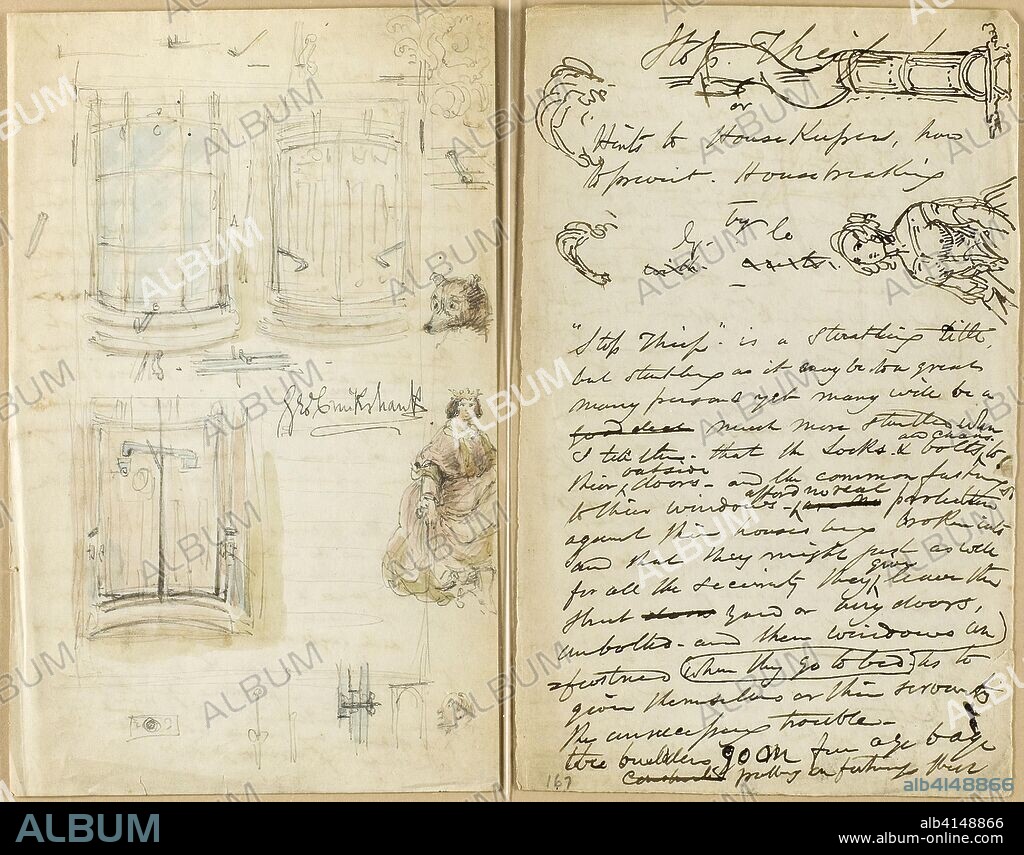 Geo Cruikshank
Stop. Thief!
or
Hints to House Keepers, how
to prevent. Housebreaking
by
"Stop Thief" is a startling title,
but startling as it may be to a great
many persons yet many will be a
good deal much more startled when
I tell them - that the Locks & bolts and chains to
their outside doors - and the common fastenings
to their windows - afford no real protection
against their houses being broken into
and that they might just as well
for all the security they give leave the
street doors yard or doors,
unbolted - and their windows un
=fastened (when they go to bed) as to
given themselves or their servants
the unnecessary trouble -
the builders go on from age to age
putting on fastenings that
167
ALBUM
alb4148866
ALBUM
alb4148866
www.album-online.com